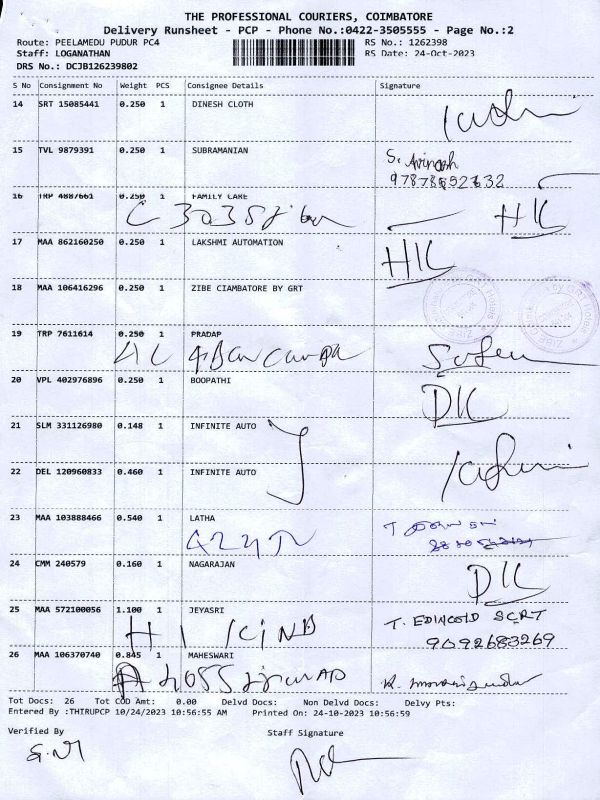 THE PROFESSIONAL COURIERS, COIMBATORE
Delivery Runsheet - PCP - Phone No.:0422-3505555 - Page No.:2
Route: PEELAMEDU PUDUR PC4 RS No.: 1262398
Staff: LOGANATHAN RS Date: 24-Oct-2023
DRS No.: DCJB126239802
S No Consignment No Weight PCS Consignee Details Signature
14 SRT 15085441 0.250 1 DINESH CLOTH
15 TVL 9879391 0.250 1 SUBRAMANIAN S. Avinash
16 TRP 4887661 0.250 1 FAMILY CARE
17 MAA 862160250 0.250 1 LAKSHMI AUTOMATION
18 MAA 106416296 0.250 1 ZIBE CIAMBATORE BY GRT
19 TRP 7611614 0.250 1 PRADAP
20 VPL 402976896 0.250 1 BOOPATHI
21 SLM 331126980 0.148 1 INFINITE AUTO
22 DEL 120960833 0.460 1 INFINITE AUTO
23 MAA 103888466 0.540 1 LATHA
24 CMM 240579 0.160 1 NAGARAJAN
25 MAA 572100056 1.100 1 JEYASRI
9092683269
26 MAA 106370740 0.845 1 MAHESWARI
Tot Docs: 26 Tot COD Amt: 0.00 Delvd Docs: Non Delvd Docs: Delvy Pts:
Entered By :THIRUPCP 10/24/2023 10:56:55 AM Printed On: 24-10-2023 10:56:59
Verified By Staff Signature